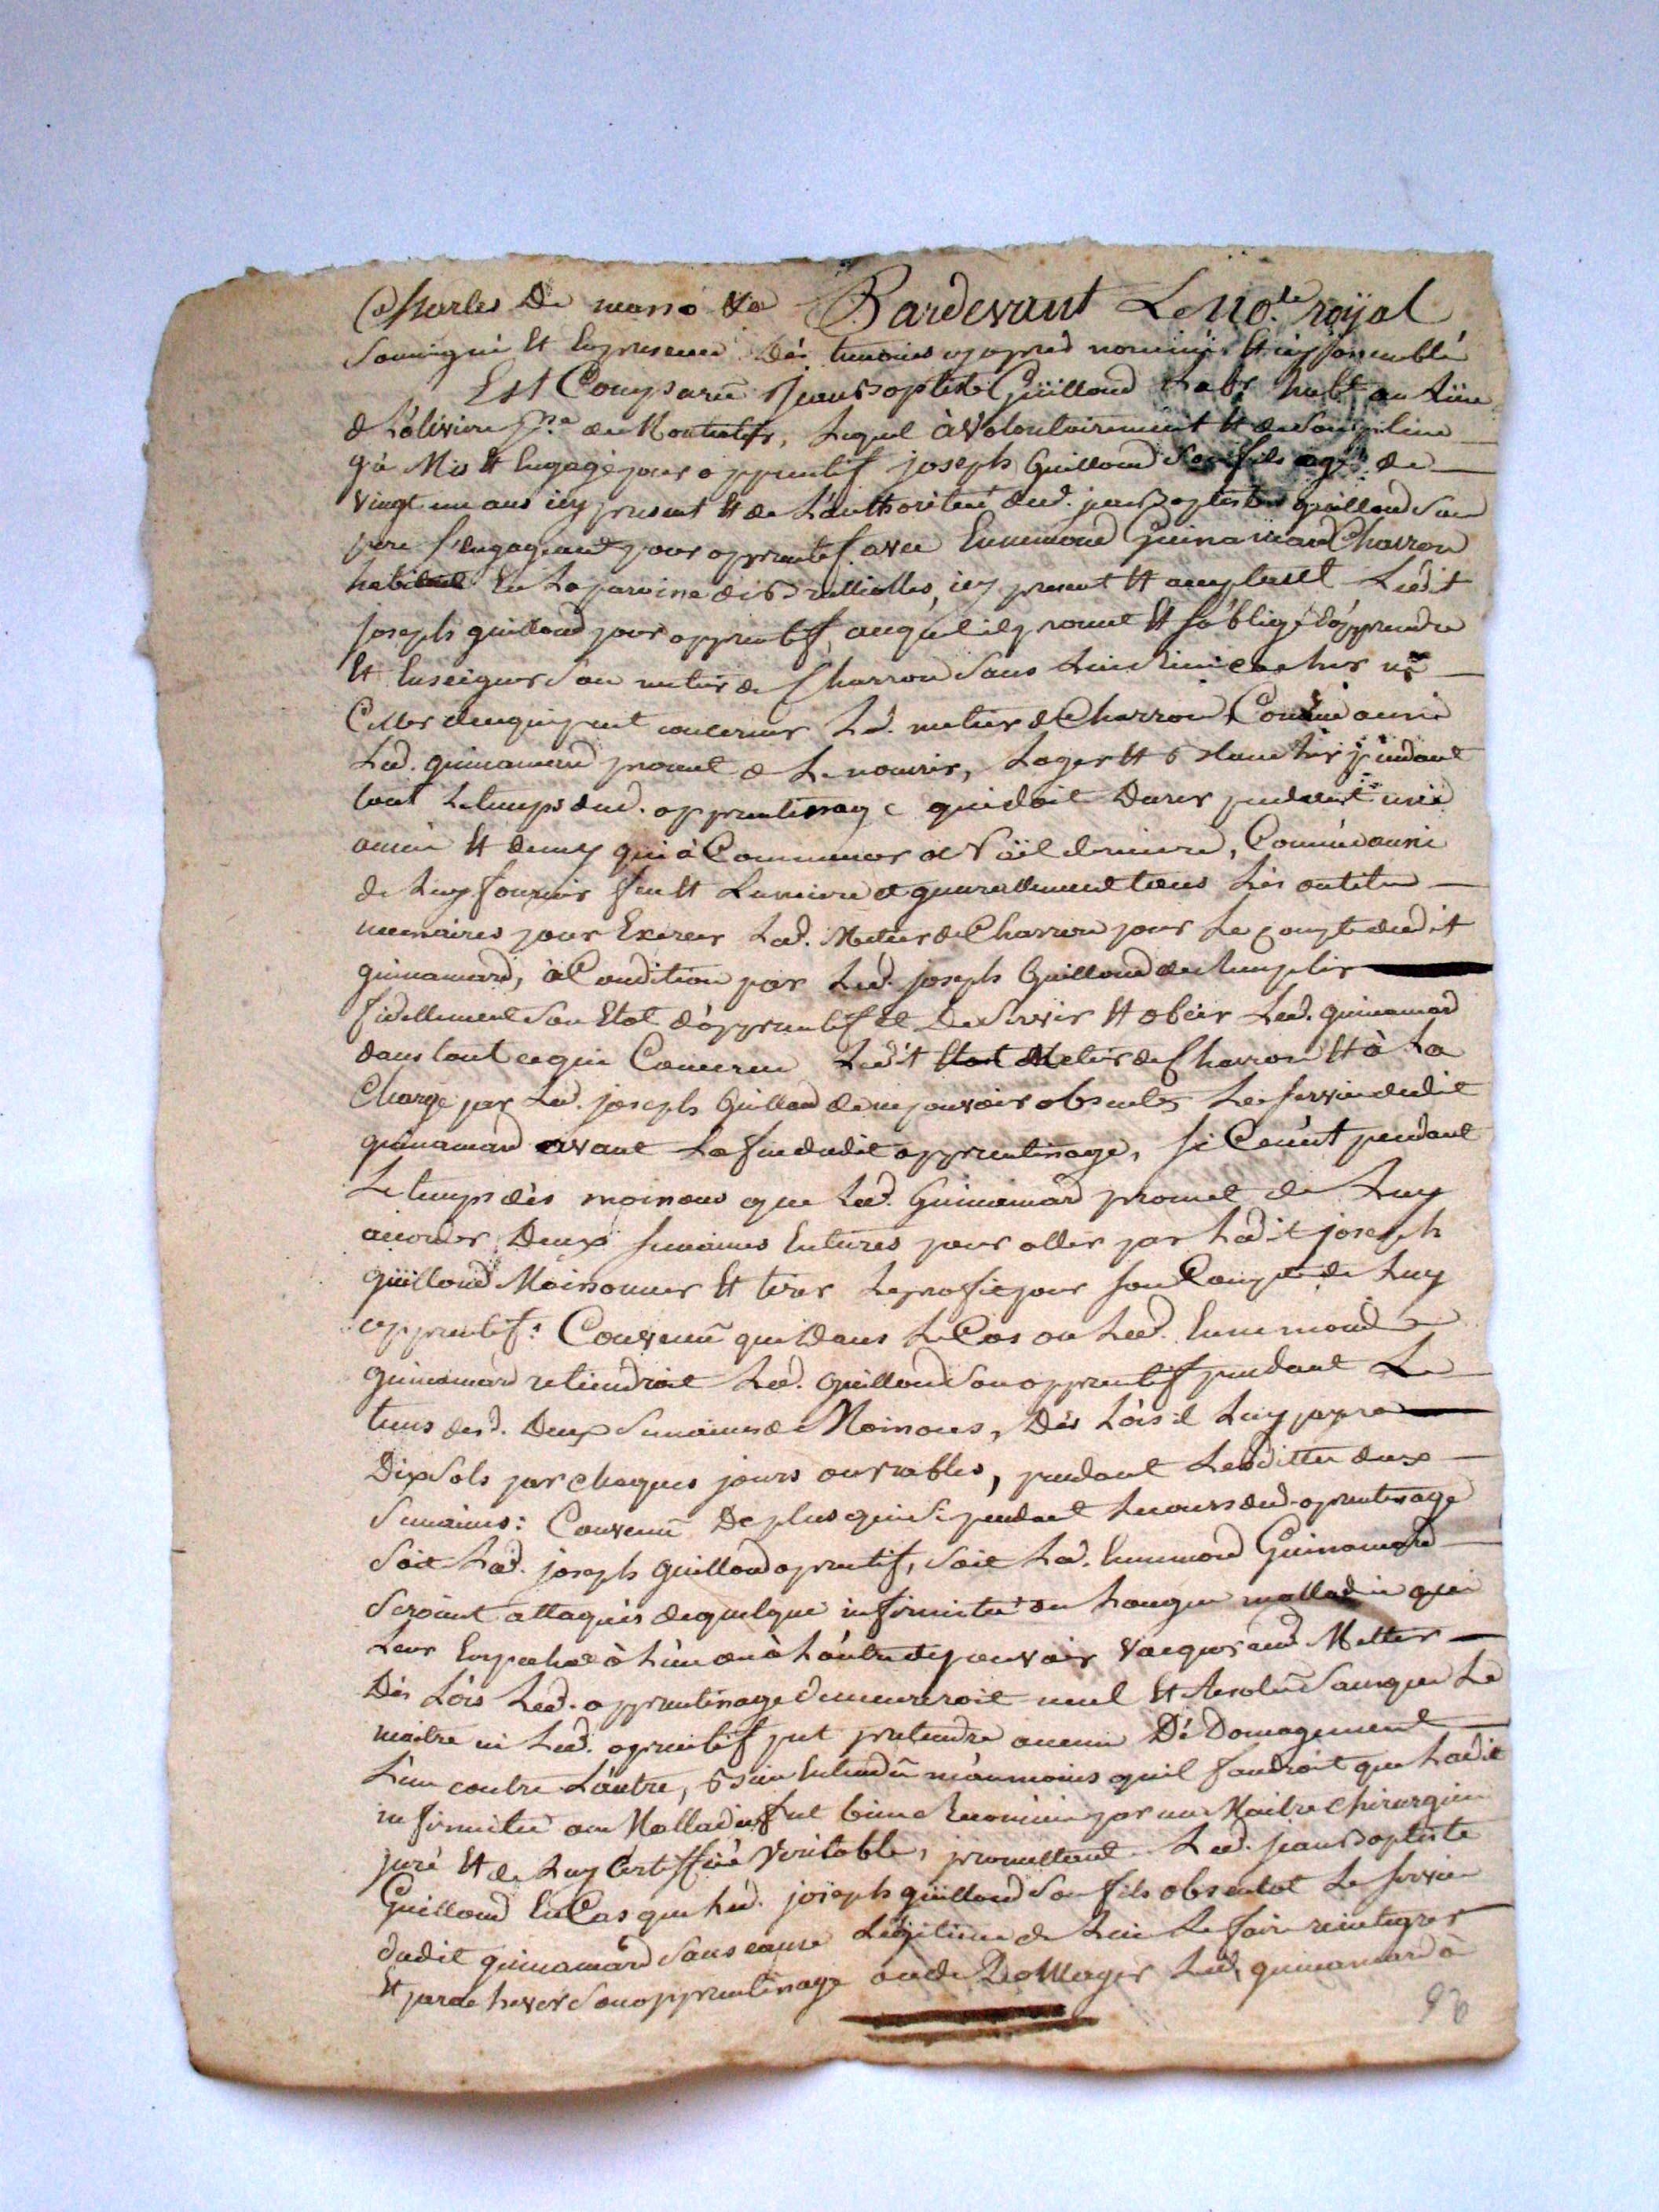 Charles De Pardevant Le No.re royal
Soussigné Et En presence Dès temoins cy apprès nommés
Est Comparü Jean Baptiste Guilloud Labr habt au
de Loliviere p.sse de lequel à Volontairement Et de Son
gré Mis Et Engagé pour apprentif joseph Guilloud Son fils agé de
vingt un ans icy present Et de L'authorittée dud. jean Baptiste guilloud Son
pere S'engageant pour apprentif avec Ennemond Guinamard Charron
habitant En La paroisse de icy present Et acceptant Ledit
joseph guilloud pour apprentif, auquel il promet Et S'oblige d'apprendre
Et Enseigner Son metier de Charron Sans Lui Rien cacher ni
Celler de ce qui peut concerner Led. metier de Charron, Comme aussi
Led. guinamard promet de Le nourrir, Loger Et Blanchir pendant
tout Le temps dud. apprentissage qui doit Durer pendant une
année Et demy qui à Commencer à Noël derniere, Comme aussi
de Luy fournir feu Et Lumiere et generallement tous Les outils
necessaires pour Exercer Led. Metier de Charron pour Le compte dudit
guinamard, à Condition par Led. joseph Guilloud de Remplir
fidellement Son Etat d'apprentif Et De Servir Et obeir Led. guinamard
dans tout ce qui Concerne Ledit Metier de Charron Et à La
Charge par Led. joseph Guilloud de ne pouvoir absenter Le Service dudit
guinamard avant La fin dudit apprentissage, Si Ce n'est pendant
Le temps dès moissons que Led. Guinamard promet de Luy
accorder Deux Semaines Entieres pour aller par Ledit joseph
guilloud Moissonner Et tirer Le profit pour Son Compte de Luy
apprentif: Convenü que Dans Le Cas ou Led. Ennemond
guinamard retiendroit Led. guilloud Son apprentif pendant Le
tems desd. Deux Semaines de Moissons, Dès Lors il Luy payera
Dix Sols par chaques jours ouvrables, pendant Lesdittes deux
Semaines: Convenü De plus que Si pendant Le cours dud. aprentissage
Soit Led. joseph guilloud aprentif, Soit Led. Ennemond Guinamard
Seroient attaqués de quelque infirmitée ou Longue malladie qui
Leur Empechat à L'un ou à L'autre de pouvoir vacquer aud. Metier
Dès Lors Led. apprentissage demeureroit nul Et Resolü Sans que Le
maitre ni Led. aprentif put pretendre aucun Dédomagement
L'un contre L'autre, Bien Entendü néanmoins quil faudroit que Ladite
infirmitée ou Malladie fut bien Reconnüe par un Maitre chirurgien
juré Et de Luy Certiffiée Veritable, promettant Led. jean Baptiste
Guilloud En Cas que Led. joseph guilloud Son fils absentat Le Service
dudit guinamard Sans cause Légitime de Lui Le faire reintegrer
Et parachever Son apprentissage ou de Dedomager Led. guinamard à